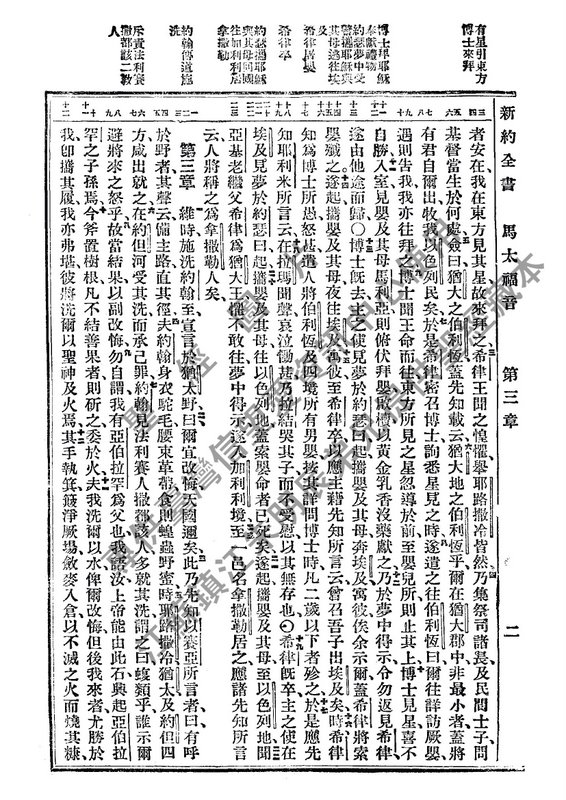 新約全書 馬太福音 第三章 二
有星引東方
博士來拜
博士拜耶穌
奉獻禮物
約瑟夢中受
警攜耶穌與
其母逃往埃
及
希律居嬰
希律卒
約瑟攜耶穌
與其母回國
往加利利居
拿撒勒
約翰傳道施
洗
斥責法利賽
撒都該二教
人
者安在我在東方見其星故來拜之希律王聞之惶懼舉耶路撒冷皆然乃集祭司諸長及民間士子問
基督當生於何處僉曰猶大之伯利恆蓋先知載云猶大地之伯利恆乎爾在猶大郡中非最小者蓋將
有君自爾出牧我以色列民矣於是希律密召博士詢悉星見之時遂遣之往伯利恆曰爾往詳訪厥嬰
遇則告我我亦往拜之博士聞王命而往東方所見之星忽導於前至嬰兒所則止其上博士見星喜不
自勝入室見嬰與其母馬利亞則俯伏拜嬰啟櫝以黃金乳香沒藥獻之乃於夢中得示令勿返見希律
遂由他途而歸〇博士旣去主之使見夢於約瑟曰起攜嬰及其母奔埃及寓彼俟余示爾蓋希律將索
嬰殲之遂起攜嬰及其母夜往埃及寓彼至希律卒以應主藉先知所言云曾召吾子出埃及矣時希律
知為博士所愚怒甚遣人將伯利恆及四境所有男嬰按其詳問博士時凡二歲以下者殄之於是應先
知耶利米所言云在拉瑪聞聲哀泣慟甚乃拉結哭其子而不受慰以其無存也〇希律旣卒主之使在
埃及見夢於約瑟曰起攜嬰及其母往以色列地蓋索嬰命者已死矣遂起攜嬰及其母至以色列地聞
亞基老繼父希律為猶大王懼不敢往夢中得示遂往加利利境至一邑名拿撒勒居之應諸先知所言
云人將稱之為拿撒勒人矣
第三章 維時施洗約翰至宣言於猶太野曰爾宜改悔天國邇矣此乃先知以賽亞所言者曰有呼
於野者其聲云備主路直其徑夫約翰身衣駝毛腰束革帶食則蝗蟲野蜜時耶路撒冷猶太及約但四
方咸出就之在約但河受其洗而承己罪約翰見法利賽人撒都該人多就其洗謂之曰蝮類乎誰示爾
避將來之怒乎故當結果以副改悔勿自謂我有亞伯拉罕為父也我語汝上帝能由此石興起亞伯拉
罕之子孫焉今斧置樹根凡不結善果者則斫之委於火夫我洗爾以水俾爾改悔但後我來者尤勝於
我卽攜其履我亦弗堪彼將洗爾以聖神及火焉其手執箕簸淨厥場斂麥入倉以不滅之火而燒其糠